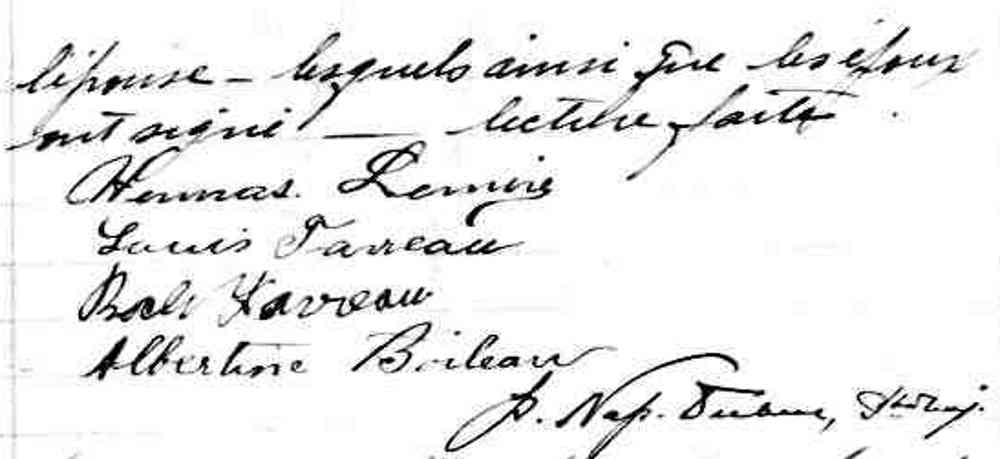 l'épouse - lesquels ainsi que les époux
ont signé — lecture faite.
Hermas. Lemire
Louis Favreau
Favreau
Albertine Boileau
J. Nap.